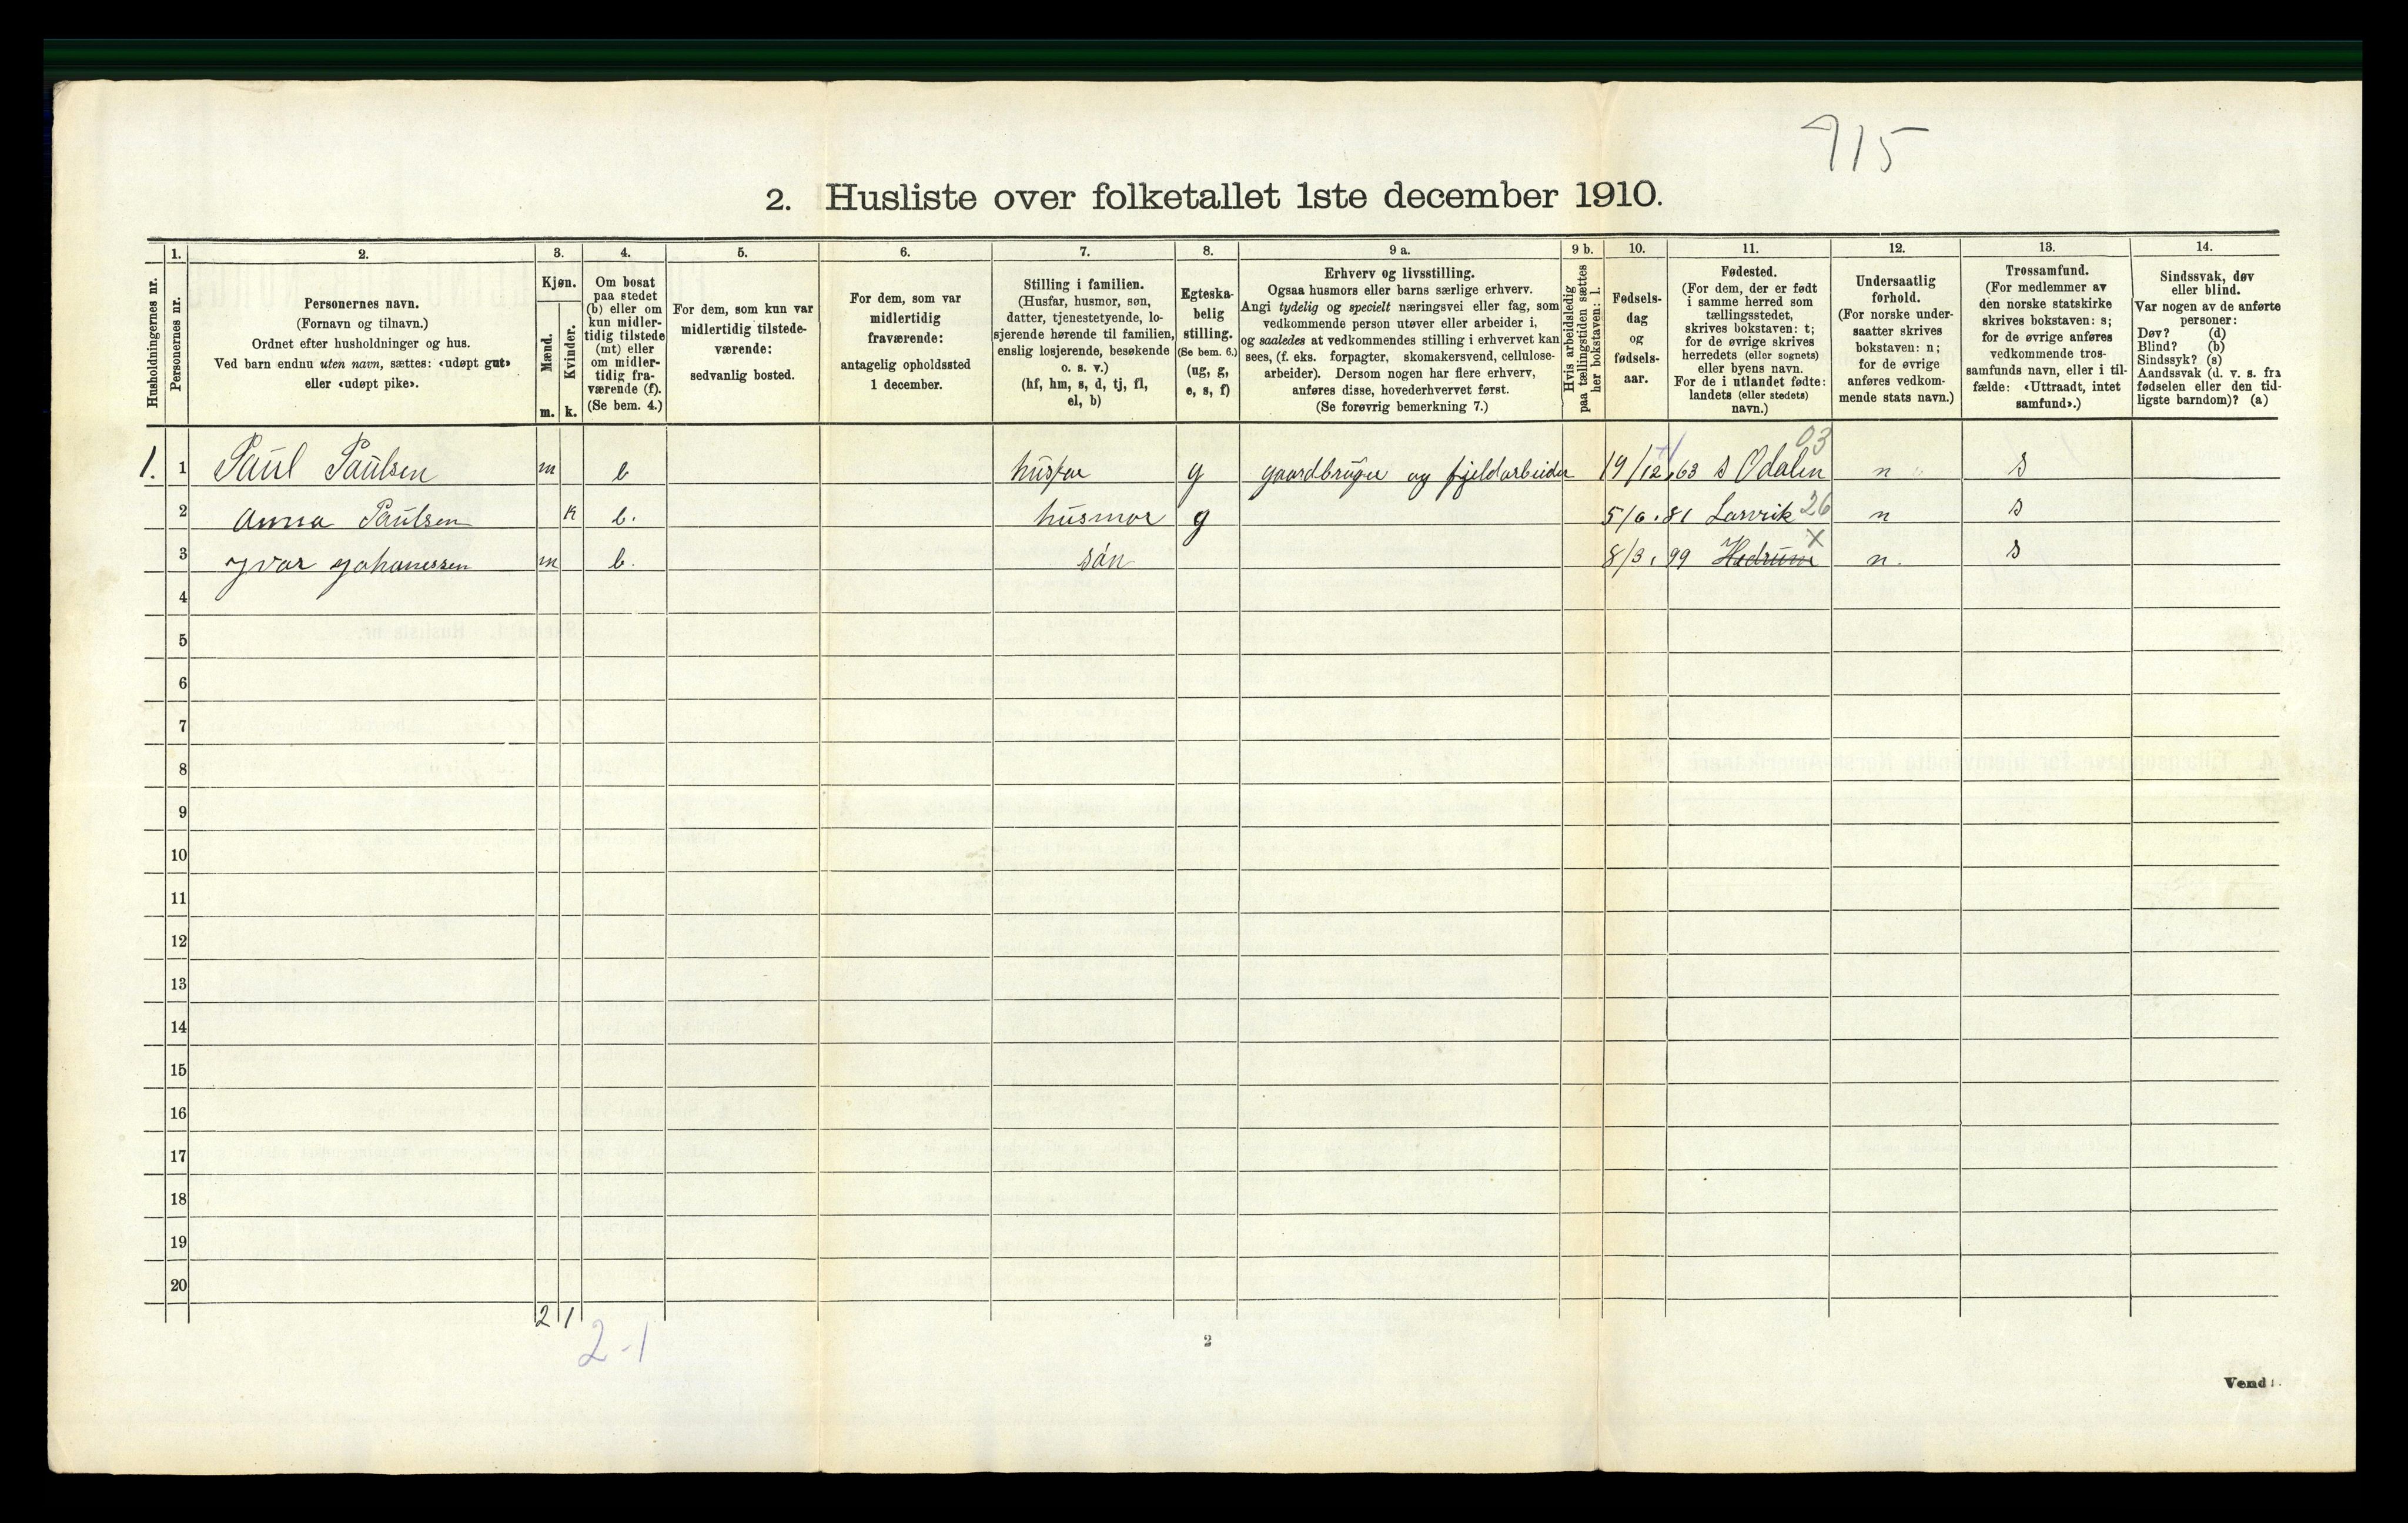 915
2. Husliste over folketallet 1ste december 1910.
Husholdningernes nr.
1.
Personernes nr.
2.
Personernes navn.
(Fornavn og tilnavn.)
Ordnet efter husholdninger og hus.
Ved barn endnu uten navn, sættes: «udøpt gut»
eller «udøpt pike».
3.
Kjøn.
Mænd.
Kvinder.
m. k.
4.
Om bosat
paa stedet
(b) eller om
kun midler-
tidig tilstede
(mt) eller
om midler-
tidig fra-
værende (f).
(Se bem. 4.)
5.
For dem, som kun var
midlertidig tilstede-
værende:
sedvanlig bosted.
6.
For dem, som var
midlertidig
fraværende:
antagelig opholdssted
1 december.
7.
Stilling i familien.
(Husfar, husmor, søn,
datter, tjenestetyende, lo-
sjerende hørende til familien,
enslig losjerende, besøkende
o. s. v.)
(hf, hm, s, d, tj, fl,
el, b)
8.
Egteska-
belig
stilling.
(Se bem. 6.)
(ug, g,
e, s, f)
9 a.
Erhverv og livsstilling.
Ogsaa husmors eller barns særlige erhverv.
Angi tydelig og specielt næringsvei eller fag, som
vedkommende person utøver eller arbeider i,
og saaledes at vedkommendes stilling i erhvervet kan
sees, (f. eks. forpagter, skomakersvend, cellulose-
arbeider). Dersom nogen har flere erhverv,
anføres disse, hovederhvervet først.
(Se forøvrig bemerkning 7.)
9 b.
Hvis arbeidsledig
paa tællingstiden sættes
her bokstaven: l.
10.
Fødsels-
dag
og
fødsels-
aar.
11.
Fødested.
(For dem, der er født
i samme herred som
tællingsstedet,
skrives bokstaven: t;
for de øvrige skrives
herredets (eller sognets)
eller byens navn.
For de i utlandet fødte:
landets (eller stedets)
navn.)
12.
Undersaatlig
forhold.
(For norske under-
saatter skrives
bokstaven: n;
for de øvrige
anføres vedkom-
mende stats navn.)
13.
Trossamfund.
(For medlemmer av
den norske statskirke
skrives bokstaven: s;
for de øvrige anføres
vedkommende tros-
samfunds navn, eller i til-
fælde: «Uttraadt, intet
samfund».)
14.
Sindssvak, døv
eller blind.
Var nogen av de anførte
personer:
Døv? (d)
Blind? (b)
Sindssyk? (s)
Aandssvak (d. v. s. fra
fødselen eller den tid-
ligste barndom)? (a)
1. 1 Paul Paulsen m b husfar g gaardbruger og fjeldarbeider 19/12.63 s Odalen 03 n s
2 Anna Paulsen k b. husmor g 5/6.81 Larvik 26 n s
3 Yvar Yohanessen m b. sön 8/3.99 Hedrum X n. s
4
5
6
7
8
9
10
11
12
13
14
15
16
17
18
19
20
2 1
2-1
2
Vend!